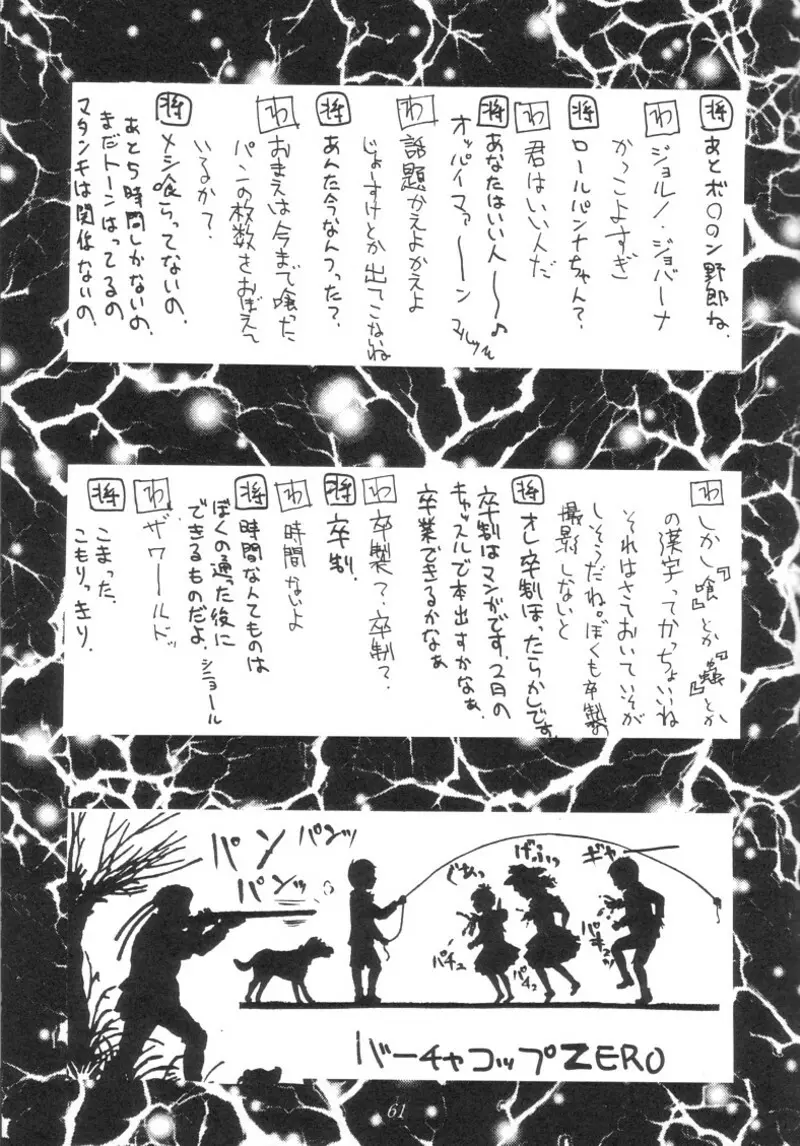 将 あとボ○○ン野郎ね.
わ ジョルノ・ジョバーナ
かっこよすぎ
将 ロールパンナちゃん?
わ 君はいい人だ
将 あなたはいい人〜〜♪
オッパイマァ〜〜ン
わ 話題かえよかえよ
じょーすけとか出てこないね
将 あんた今なんつった?
わ おまえは今まで喰った
パンの枚数をおぼえて
いるか?
将 メシ喰らってないの.
あと5時間しかないの.
まだトーンはってるの
マタンキは関係ないの.
わ しかし『喰』とか『蟲』とか
の漢字ってかっちょいいね
それはさておいていそが
しそうだね。ぼくも卒製の
撮影しないと
将 オレ卒制ほったらかしです.
卒制はマンガです. 2日の
キャッスルで本出すかなぁ.
卒業できるかなぁ
わ 卒製?・卒制?
将 卒制.
わ 時間ないよ
将 時間なんてものは
ぼくの通った後に
できるものだよ. ジョニール
わ ザワールドッ
将 こまった.
こもりっきり.
パン パンッ
パンッ
ぐあっ
げふっ
ギャー
パチュ
パチュ
パチュッ
バーチャコップZERO
61